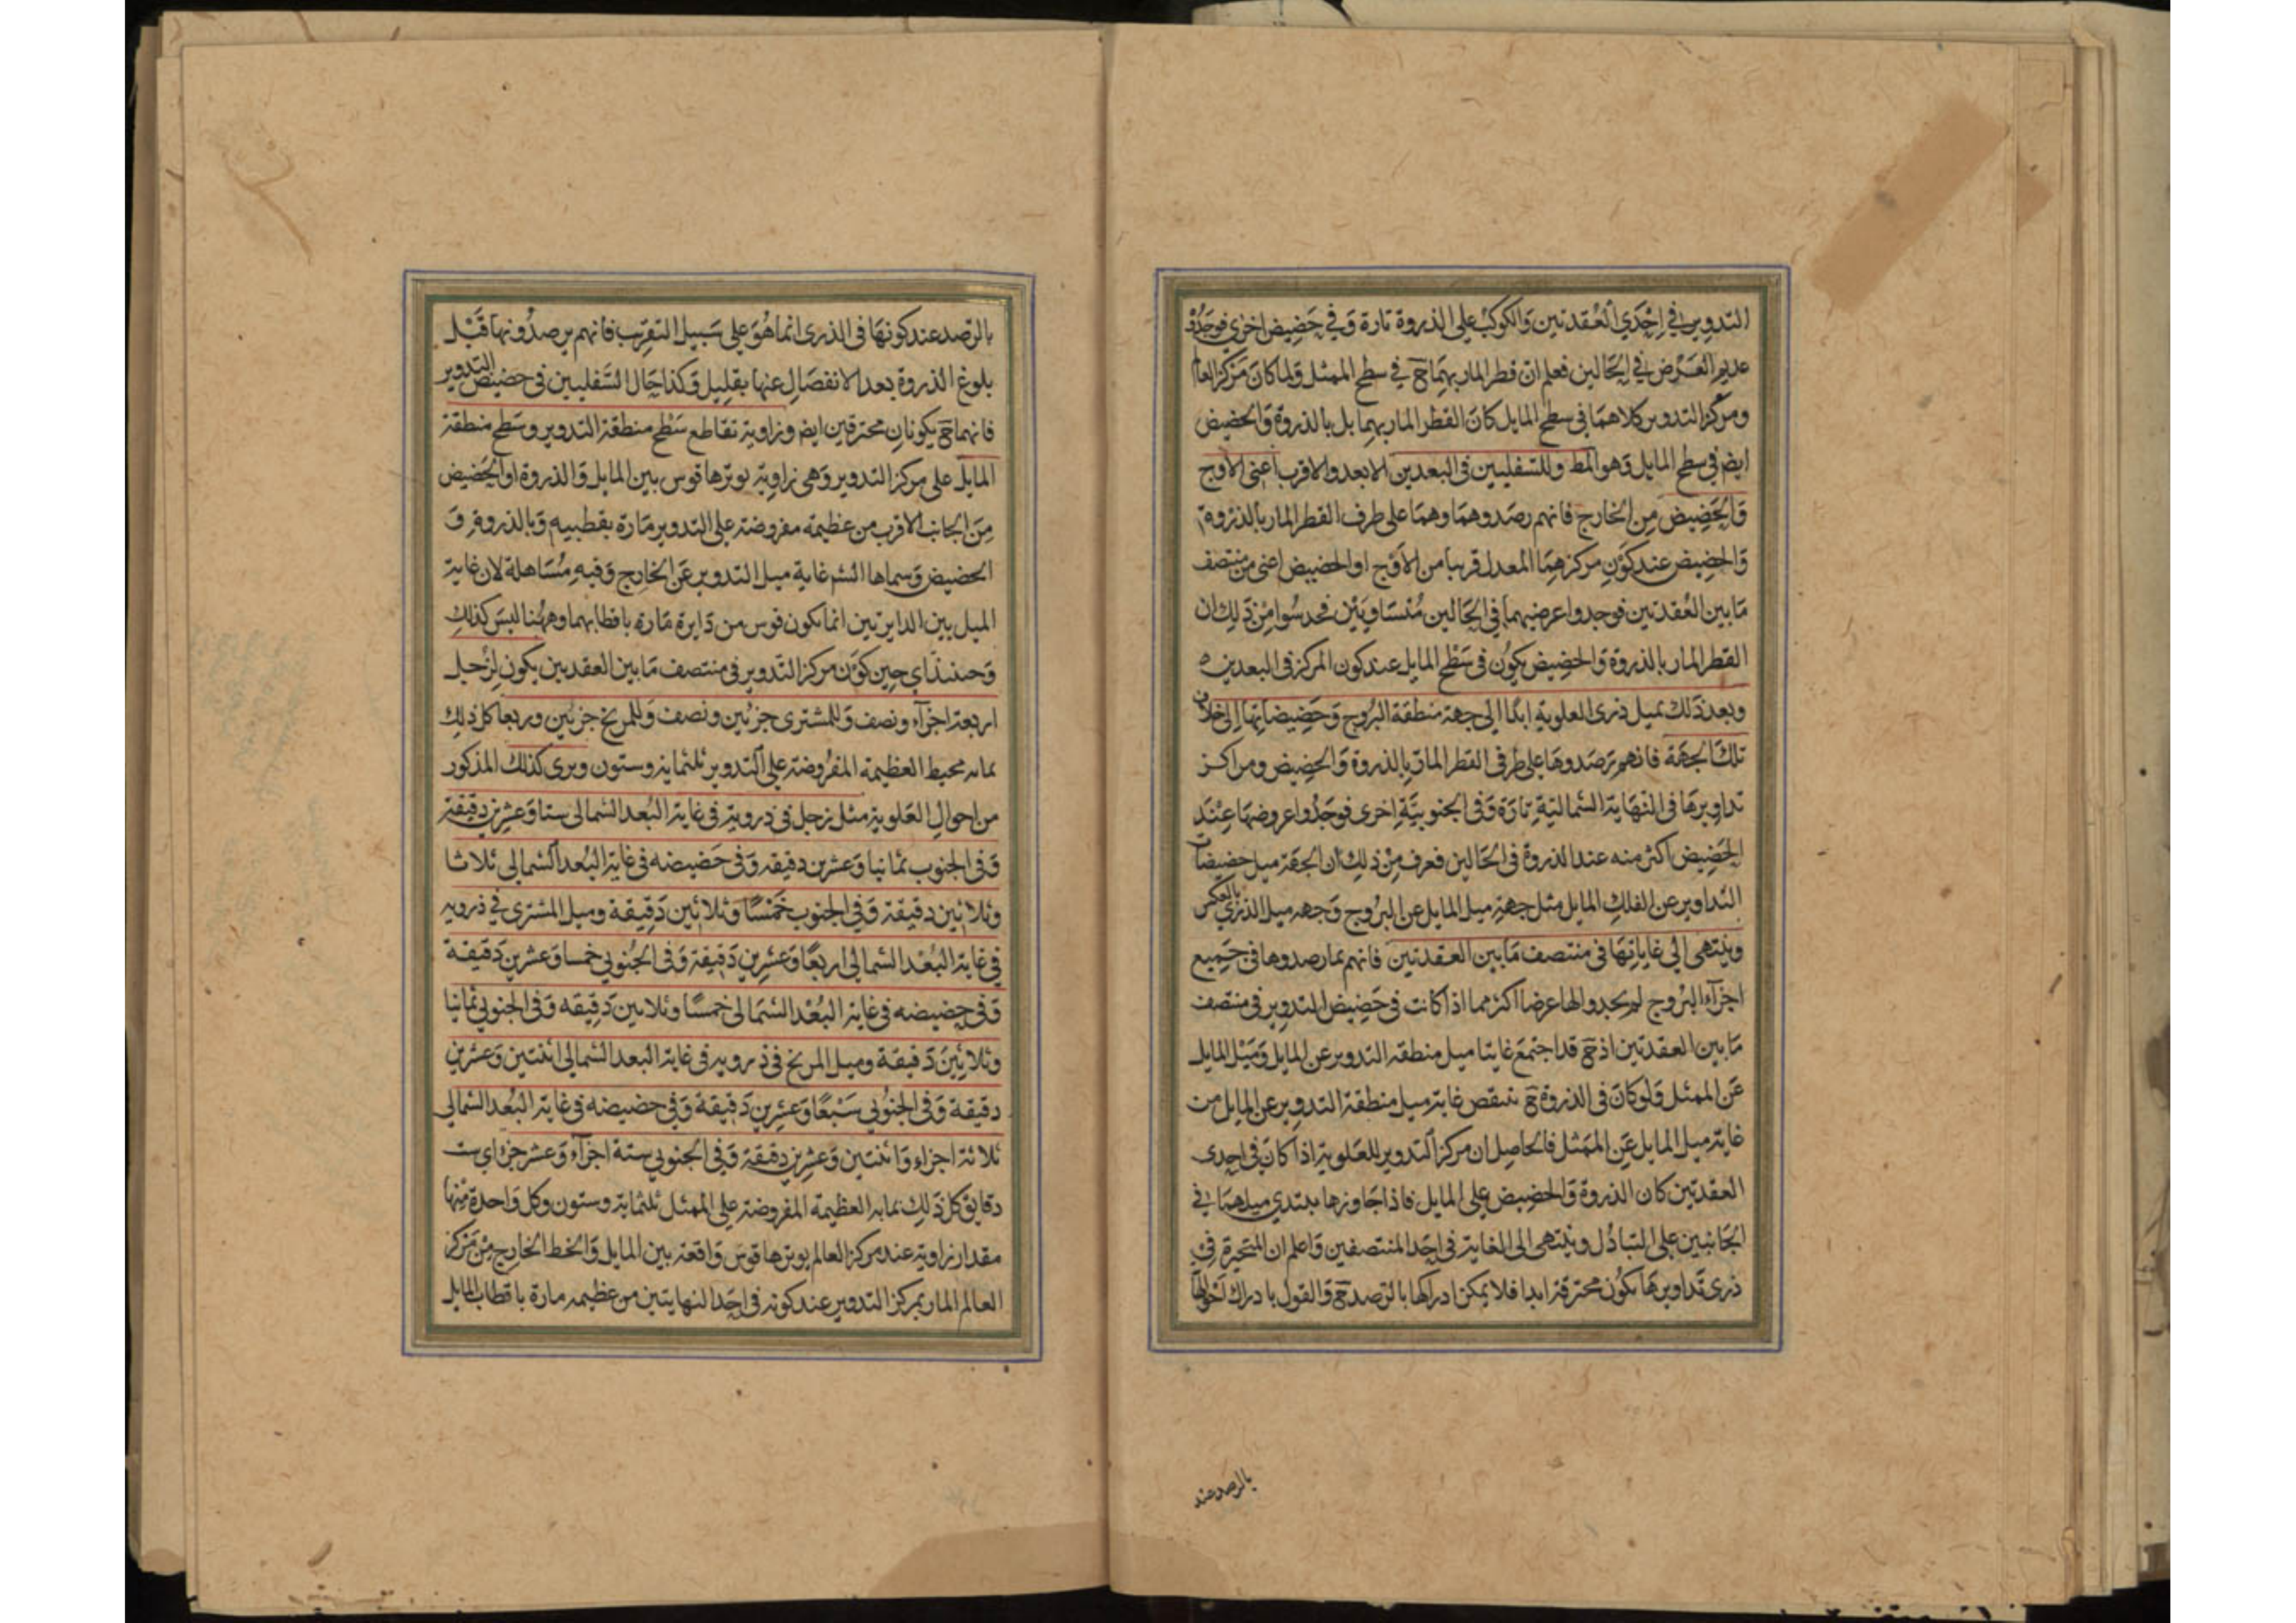 التدوير في احدي العقدتين والكوكب علي الذروة تارة وفي حضيض اخري فوجدوه
عديم العرض في الحالين فعلم ان قطر المار بهما ح في سطح الممثل ولما كان مركز العالم
ومركز التدوير كلاهما في سطح المايل كان القطر المار بهما بل بالذروة والحضيض
ايض في سطح المايل وهو المط وللسفليين في البعدين الابعد والاقرب اعني الاوج
والحضيض من الخارج فانهم رصدوهما وهما علي طرف القطر المار بالذروة
والحضيض عند كون مركزهما المعدل قريبا من الاوج او الحضيض اعني من منتصف
ما بين العقدتين فوجدوا عرضيهما في الحالين متساويين فحدسوا من ذلك ان
القطر المار بالذروة والحضيض يكون في سطح المايل عند كون المركز في البعدين
وبعد ذلك تميل ذري العلوية ابدا الي جهة منطقة البروج وحضيضاتها الي خلاف
تلك الجهة فانهم ترصدوها علي طرفي القطر المار بالذروة والحضيض ومراكز
تداويرها في النهاية الشمالية تارة وفي الجنوبية اخري فوجدوا عروضها عند
الحضيض اكثر منه عند الذروة في الحالين فعرف من ذلك ان الجهة ميل حضيضات
التداوير عن الفلك المايل مثل جهة ميل المايل عن البروج وجهه ميل الذري بالعكس
وينتهي الي غاياتها في منتصف ما بين العقدتين فانهم بما رصدوها في جميع
اجزآء البروج لم يجدوا لها عرضا اكثر مما اذا كانت في حضيض التدوير في منتصف
ما بين العقدتين اذ ح قد اجتمع غايتا ميل منطقه التدوير عن المايل وميل المايل
عن الممثل ولو كان في الذروة ح تنقص غاية ميل منطقة التدوير عن المايل من
غاية ميل المايل عن الممثل فالحاصل ان مركز التدوير للعلوية اذا كان في احدي
العقدتين كان الذروة والحضيض علي المايل فاذا جاوزها يبتدي ميلهما في
الجانبين علي التبادل وينتهي الي الغاية في احد المنتصفين واعلم ان المتحيرة في
ذري تداويرها تكون محترقة ابدا فلا يمكن ادراكها بالرصد ح والقول بادراك احوالها
بالرصد عند
بالرصد عند كونها في الذري انما هو علي سبيل التقريب فانهم يرصدونها قبل
بلوغ الذروة بعد الانفصال عنها بقليل وكذا حال السفليين في حضيض التدوير
فانهما ح يكونان محترقين ايض وزاوية تقاطع سطح منطقة التدوير وسطح منطقة
المايل علي مركز التدوير وهي زاوية يوترها قوس بين المايل والذروة او الحضيض
من الجانب الاقرب من عظيمة مفروضة علي التدوير مارة بقطبيه وبالذروة و
الحضيض وسماها الشم غاية ميل التدوير عن الخارج وفيه مساهلة لان غاية
الميل بين الدايرتين انما يكون قوس من دايرة مارة باقطابهما وههنا ليس كذلك
وحينئذ اي حين كون مركز التدوير في منتصف ما بين العقدتين يكون لزحل
اربعة اجزآء ونصف وللمشتري جزئين ونصف وللمريخ جزئين وربعا كل ذلك
بما به محيط العظيمة المفروضة علي التدوير ثلثماية وستون ويري كذلك المذكور
من احوال العلوية مثل زحل في ذرويه في غاية البعد الشمالي ستا وعشرين دقيقة
وفي الجنوب ثمانيا وعشرين دقيقه وفي حضيضه في غاية البعد الشمالي ثلاثا
وثلاثين دقيقة وفي الجنوب خمسا وثلاثين دقيقة وميل المشتري في ذرويه
في غاية البعد الشمالي اربعا وعشرين دقيقة وفي الجنوبي خمسا وعشرين دقيقة
وفي حضيضه في غاية البعد الشمالي خمسا وثلاثين دقيقه وفي الجنوبي ثمانيا
وثلاثين دقيقة وميل المريخ في ذرويه في غاية البعد الشمالي اثنتين وعشرين
دقيقة وفي الجنوبي سبعا وعشرين دقيقة وفي حضيضه في غاية البعد الشمالي
ثلاثة اجزاء واثنتين وعشرين دقيقة وفي الجنوبي ستة اجزآء وعشر جزء اي ست
دقايق كل ذلك بما به العظيمة المفروضة علي الممثل ثلثماية وستون وكل واحدة منها
مقدار زاوية عند مركز العالم يوترها قوس واقعة بين المايل والخط الخارج من مركز
العالم المار بمركز التدوير عند كونه في احد النهايتين من عظيمه مارة باقطاب المايل